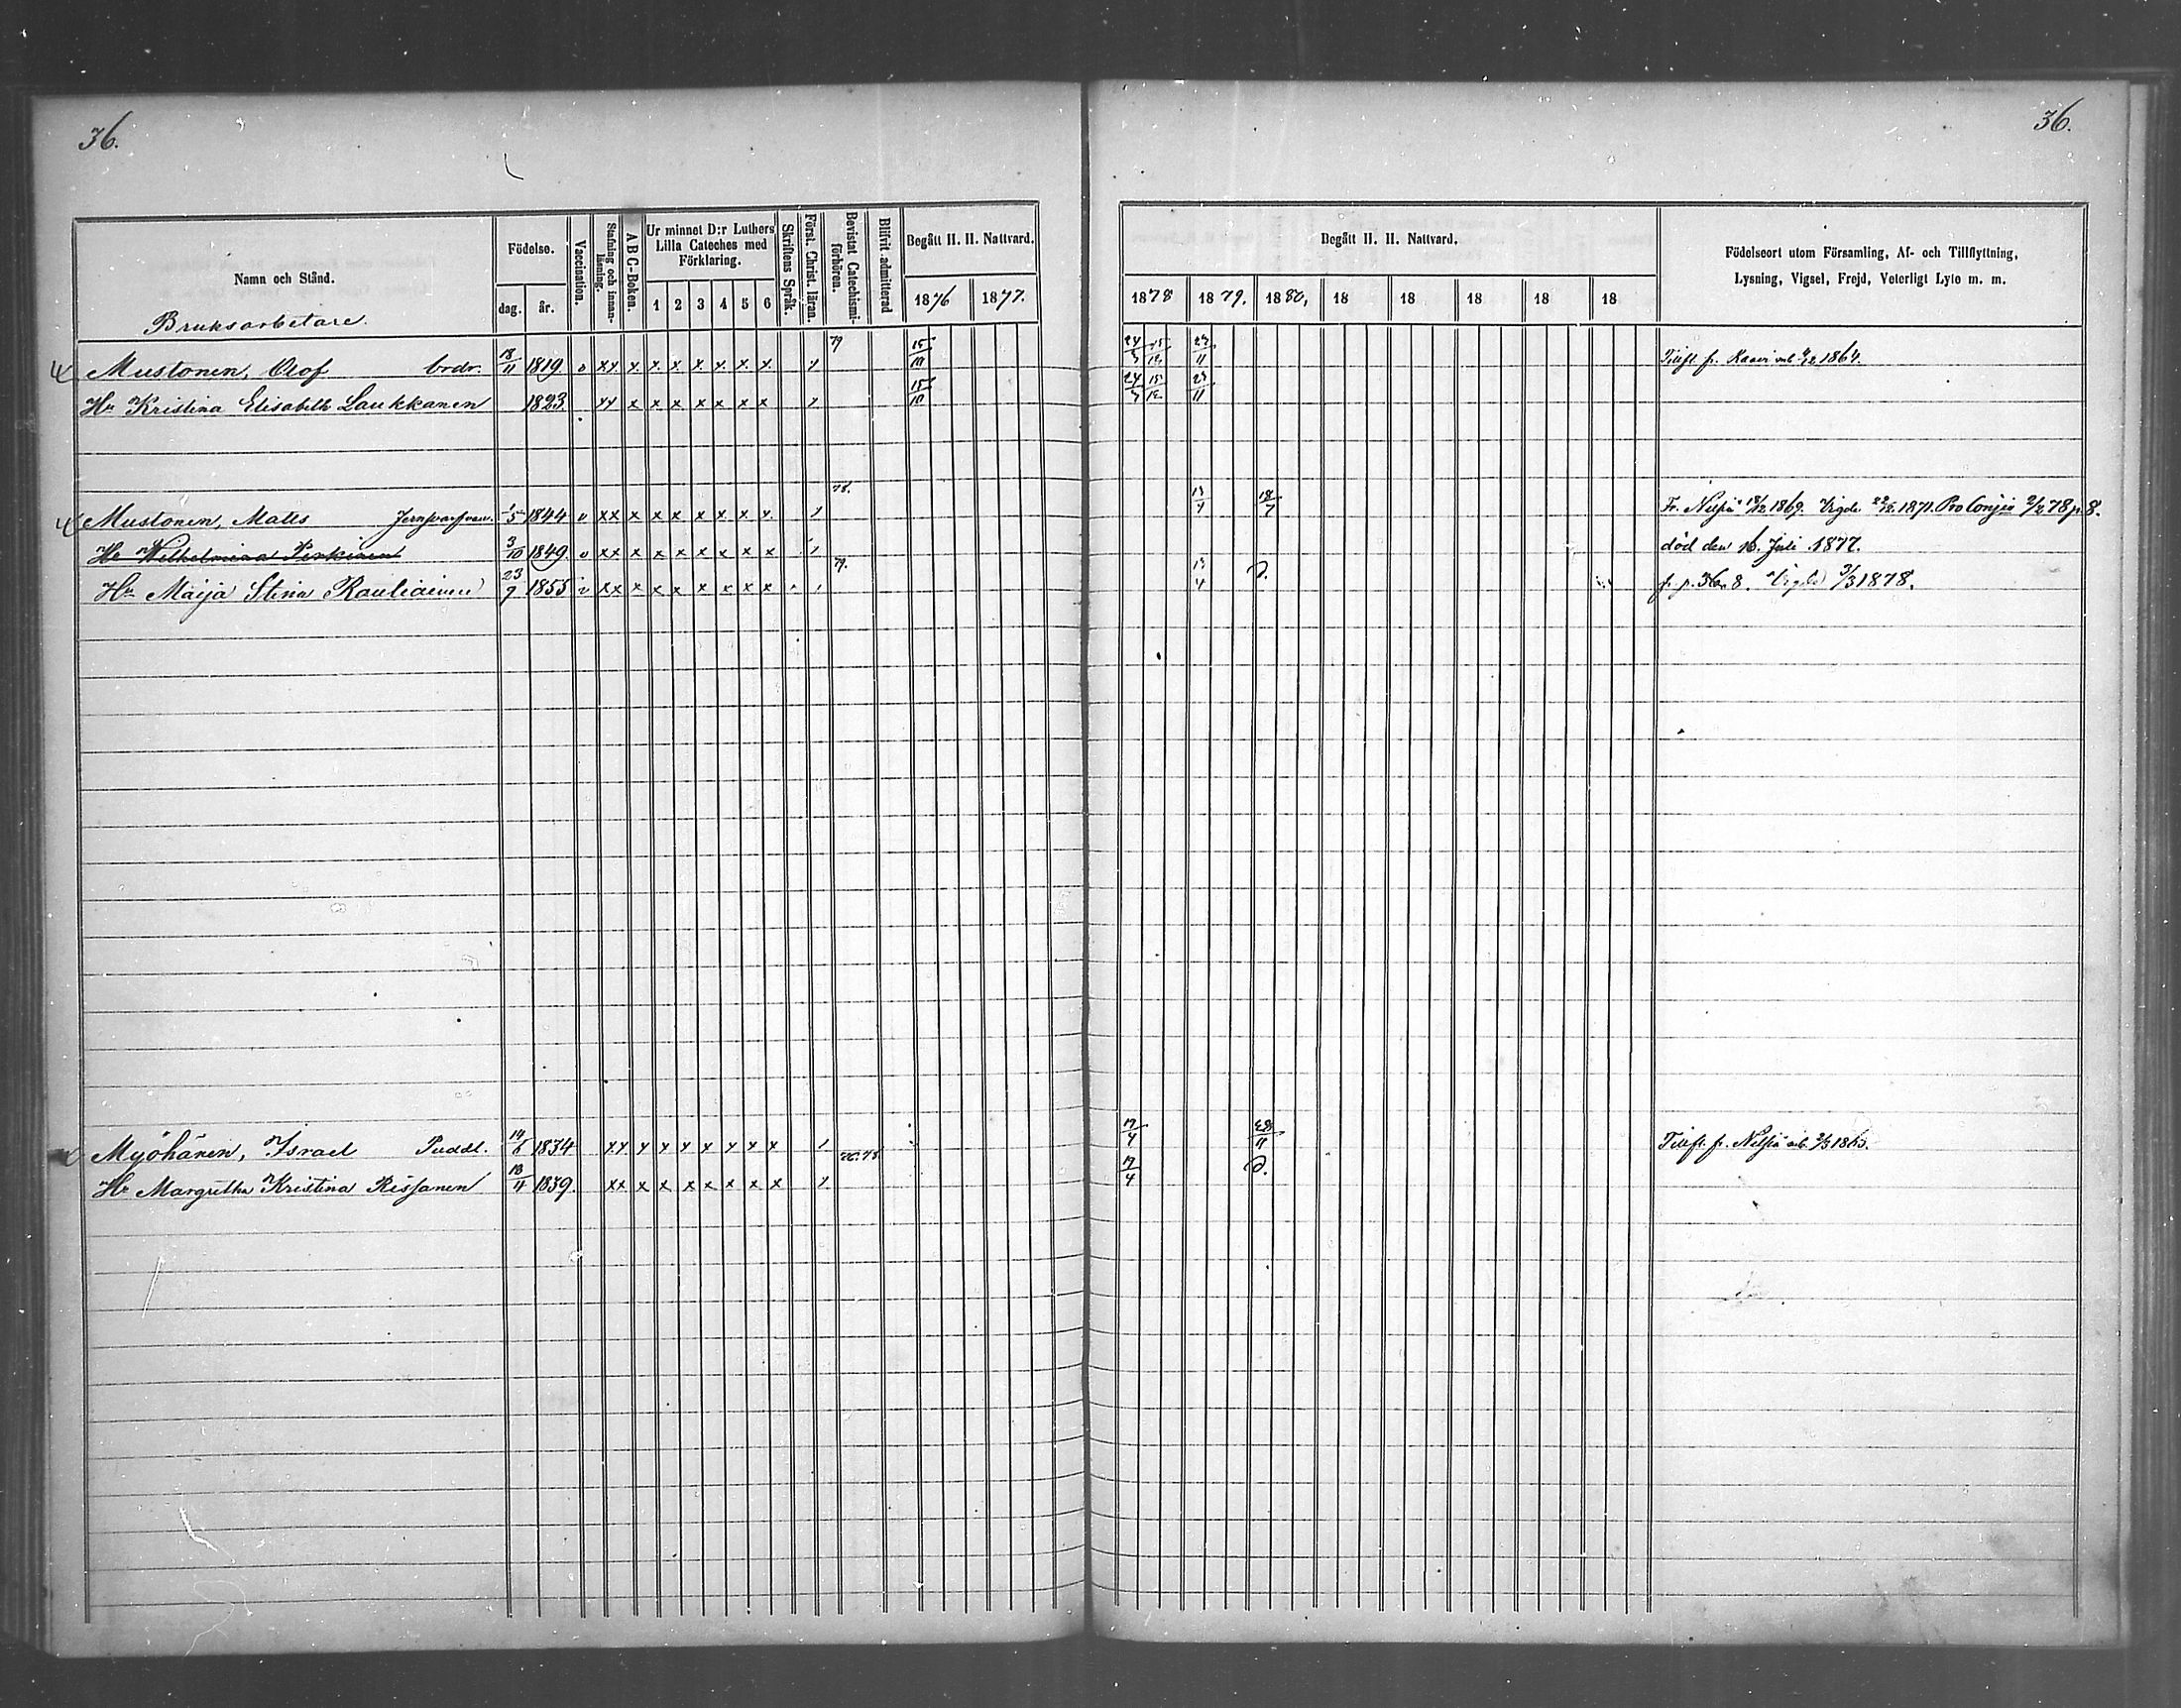 36.
36.
Namn och Stånd.
Födelse.
dag. år.
Vaccination.
Stafning och innanläsning.
A B C-Boken.
Ur minnet D:r Luthers Lilla Cateches med Förklaring.
1 2 3 4 5 6
Skriftens Språk.
Först. Christ. läran.
Bevistat Catechismiförhören.
Blifvit admitterad
Begått H. H. Nattvard.
1876 1877.
Begått H. H. Nattvard.
1878 1879. 1880, 18 18 18 18 18
Födelseort utom Församling, Af- och Tillflyttning,
Lysning, Vigsel, Frejd, Veterligt Lyte m. m.
Bruksarbetare.
Mustonen, Olof brdr. 18/11 1819 v xx x x x x x x x x 79 15/10 24/3 15/12 23/11 Tillft. fr. Kaavi 1864.
Hu Kristina Elisabeth Laukkanen 1823 xx x x x x x x x x 15/10 24/3 15/12 23/11
Mustonen, Matts 1844 v xx x x x x x x x x 78. 13/4 18/7 Fr. Nilsiä 18/12 1869. Vigde 1871. 2/2 78 p. 8.
Hu Wilhelmina 3/10 1849. v xx x x x x x x x x död den 16. Juli 1877.
Hu Maija Stina Rautiainen 23/9 1855 v xx x x x x x x x 79. 13/4 D. fr. p. 36. 8. Vigde 3/3 1878.
Myöhänen, Israel Puddl. 14/6 1834 xx x x x x x x x x 17/4 Tillft. fr. Nilsiä 1865.
Hu Margretha Kristina Rissanen 18/11 1839. xx x x x x x x x x 17/4 D.